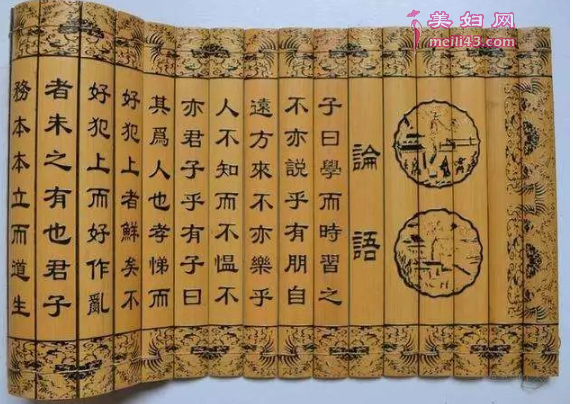 美妇网
meili43.com
論語
子曰學而時習之
不亦說乎有朋自
遠方來不亦樂乎
人不知而不愠不
亦君子乎有子曰
其爲人也孝悌而
好犯上者鮮矣不
好犯上而好作亂
者未之有也君子
務本本立而道生